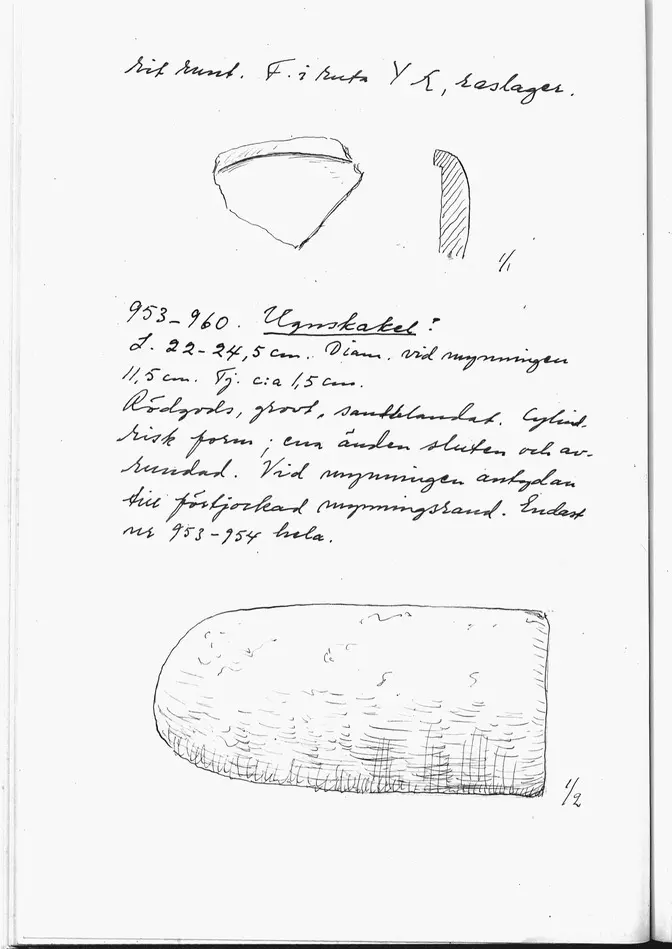 rit runt. F. i ruta Y E, raslager.
1/1
953-960. Ugnskakel?
L. 22-24,5 cm. Diam. vid mynningen
11,5 cm. Tj. c:a 1,5 cm.
Rödgods, grovt, sandblandat. Cylind-
risk form; ena änden sluten och av-
rundad. Vid mynningen antydan
till förtjockad mynningsrand. Endast
nr 953-954 hela.
1/2